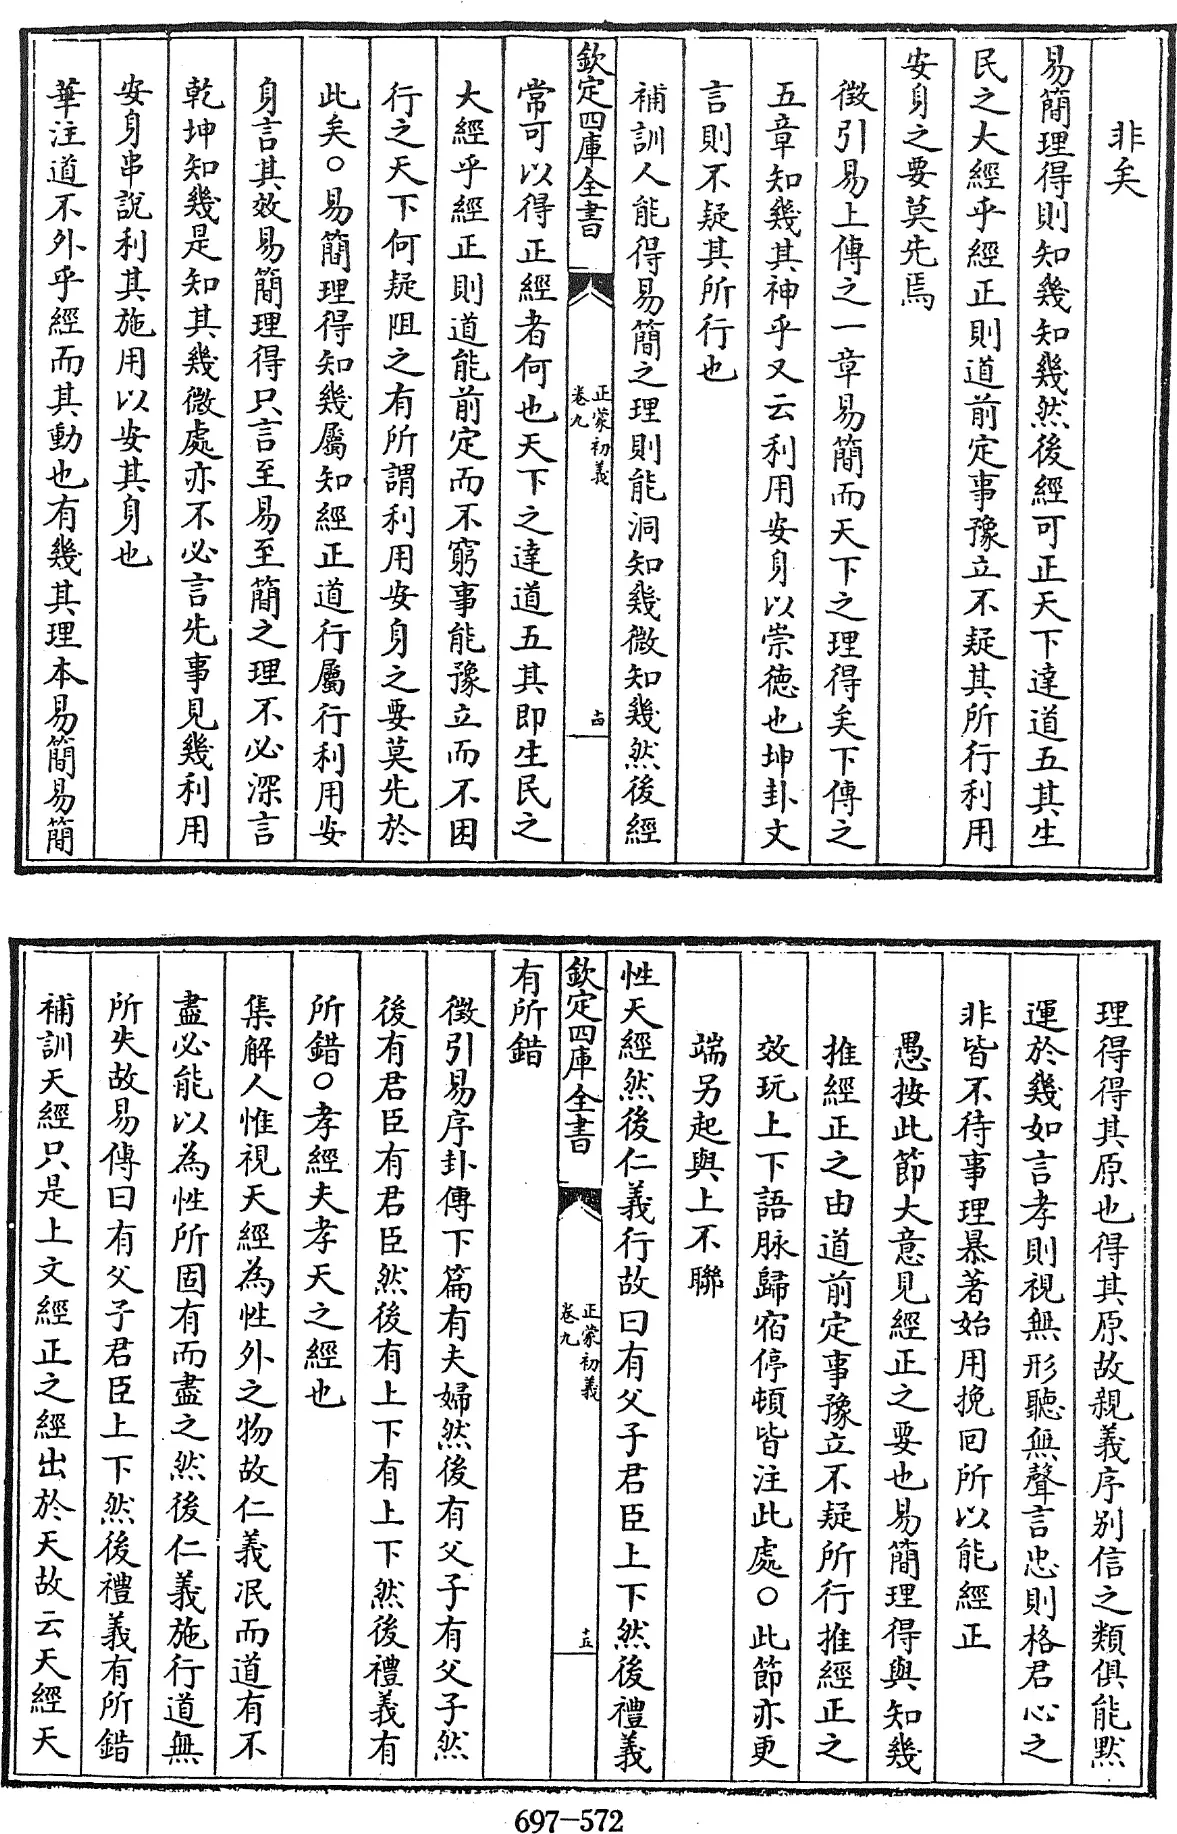 非矣
易簡理得則知幾知幾然後經可正天下達道五其生
民之大經乎經正則道前定事豫立不疑其所行利用
安身之要莫先焉
徵引易上傳之一章易簡而天下之理得矣下傳之
五章知幾其神乎又云利用安身以崇德也坤卦文
言則不疑其所行也
補訓人能得易簡之理則能洞知幾微知幾然後經
欽定四庫全書
正蒙初義
卷九
十四
常可以得正經者何也天下之達道五其即生民之
大經乎經正則道能前定而不窮事能豫立而不困
行之天下何疑阻之有所謂利用安身之要莫先於
此矣○易簡理得知幾屬知經正道行屬行利用安
身言其效易簡理得只言至易至簡之理不必深言
乾坤知幾是知其幾微處亦不必言先事見幾利用
安身串說利其施用以安其身也
華注道不外乎經而其動也有幾其理本易簡易簡
理得得其原也得其原故親義序別信之類俱能默
運於幾如言孝則視無形聽無聲言忠則格君心之
非皆不待事理暴著始用挽回所以能經正
愚按此節大意見經正之要也易簡理得與知幾
推經正之由道前定事豫立不疑所行推經正之
效玩上下語脉歸宿停頓皆注此處○此節亦更
端另起與上不聯
性天經然後仁義行故曰有父子君臣上下然後禮義
欽定四庫全書
正蒙初義
卷九
十五
有所錯
徵引易序卦傳下篇有夫婦然後有父子有父子然
後有君臣有君臣然後有上下有上下然後禮義有
所錯○孝經夫孝天之經也
集解人惟視天經為性外之物故仁義泯而道有不
盡必能以為性所固有而盡之然後仁義施行道無
所失故易傳曰有父子君臣上下然後禮義有所錯
補訓天經只是上文經正之經出於天故云天經天
697-572